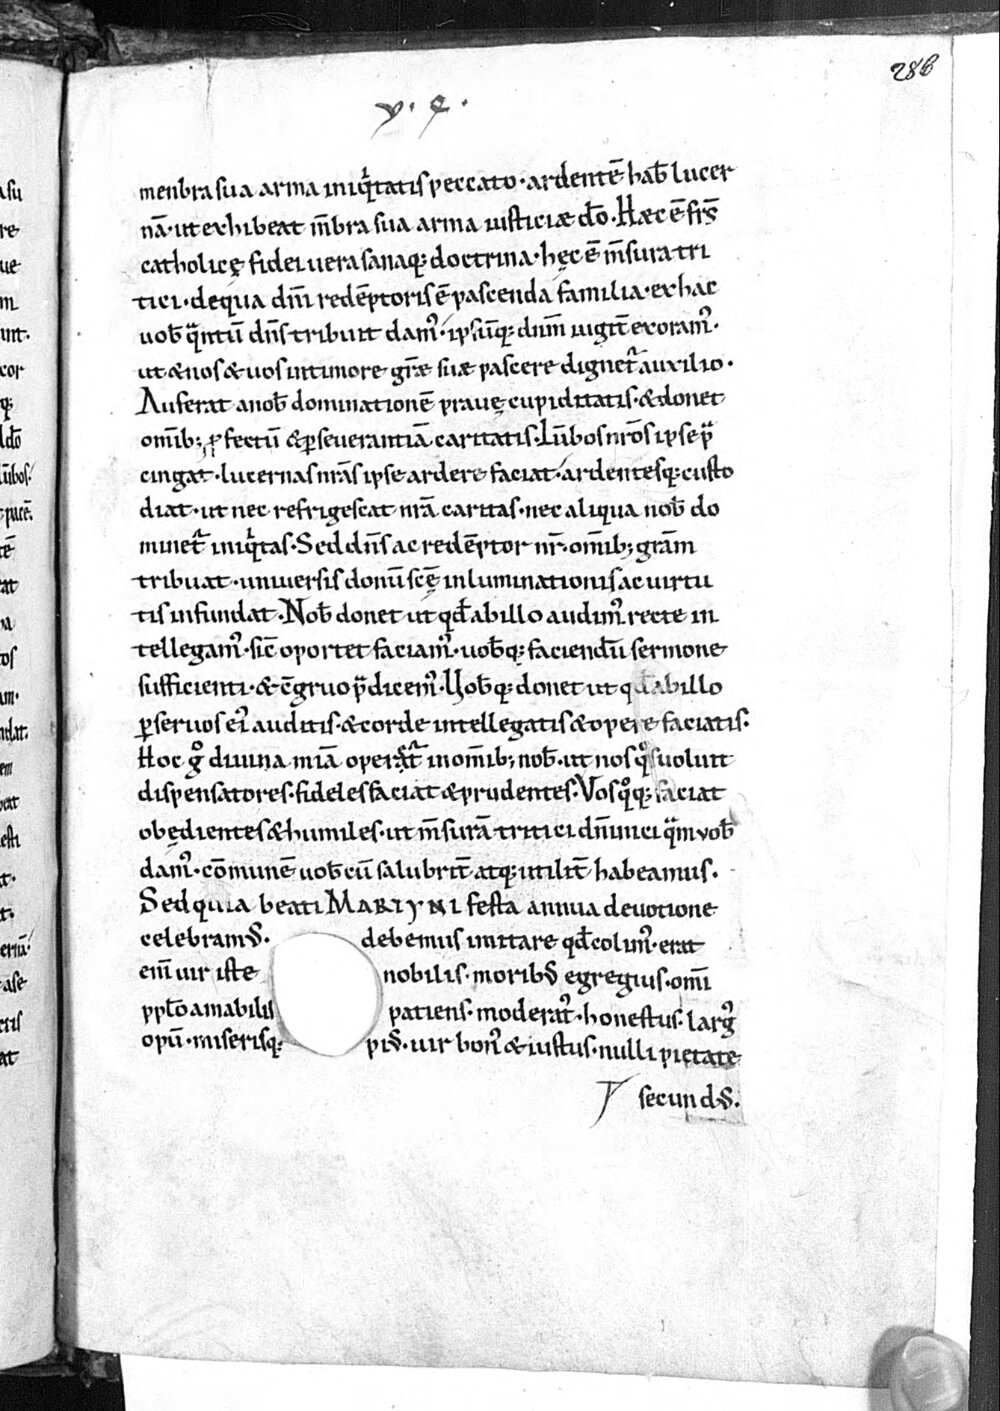 286
v. c.
menbra sua arma iniq̇tatis peccato · ardentē hab̄ lucer
nā · ut exhibeat m̄bra sua arma iusticiæ dō · Hæc ē frs̄
catholicę fidei uera sanaq; doctrina · hęc ē m̄sura tri
tici · de qua dn̄i redēptoris ē pascenda familia · ex hac
uob̄ q̄ntū dn̄s tribuit dam᾽ · ipsūq; dnm̄ iugit̄ exoram᾽ ·
ut & nos & uos intimo re gr̄æ suæ pascere dignet᾽ auxilio ·
Auferat a nob̄ dominationē prauę cupiditatis · & donet
omīb; ꝓfectū & ꝑseuerantiā caritatis · Lūbos nr̄os ipse p̄
cingat · lucernas nr̄as ipse ardere faciat · ardentesq; custo
diat · ut nec refrigescat nr̄a caritas · nec aliqua nob̄ do
minet᾽ iniq̇tas · Sed dn̄s ac redēptor nr̄ · omīb; grām
tribuat · uniuersis donū scę̄ inluminationis ac uirtu
tis infundat · Nob̄ donet ut qd̄ ab illo audim᾽ recte in
tellegam᾽ · sic̄ oportet faciam᾽ · uob̄q; faciendū sermone
sufficienti · & cōgruo p̄dicem᾽ · Uob̄q; donet ut qd̄ ab illo
ꝑ seruos ei᾽ auditis · & corde intellegatis & opere faciatis ·
Hoc g̊ diuina mīa operat᾽ in omīb; nob̄ · ut nos q̊s uoluit
dispensatores · fideles faciat & prudentes · Vos q̊q; faciat
obędientes & humiles · ut m̄surā tritici dn̄ici q̄m uob̄
dam᾽ · cōmunē uob̄cū salubrit̄ atq; utilit̄ habeamus ·
Sed quia beati MARTYNI festa annua deuotione
celebram᾽ · debemus imitare qd̄ colim᾽ · erat
eni᷎ uir iste nobilis · morib᾽ egregius · omī
pplō amabilis patiens · moderat᾽ · honestus · larg᾽
opū · miserisq; pi᾽ · uir bon᾽ & iustus · nulli pietate
secund᾽ ·